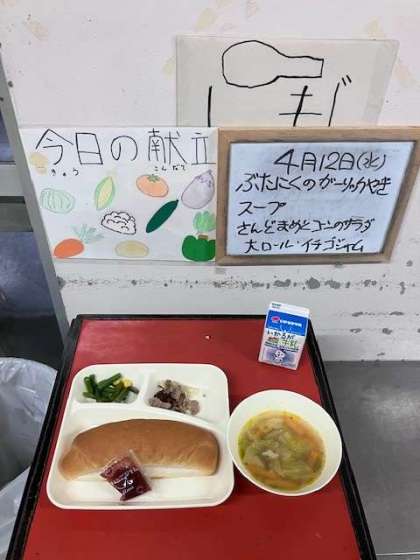 しゃもじ
今日の献立
きょう
こんだて
4月12日(水)
ぶたにくのガーリックやき
スープ
さんどまめとコーンのサラダ
大ロール・イチゴジャム
いかるが
牛乳